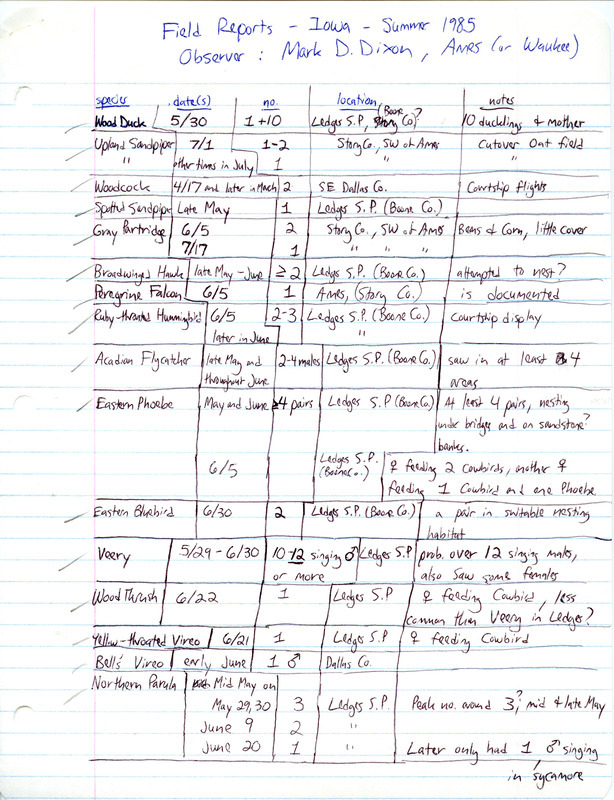 Field Reports - Iowa - Summer 1985
Observer : Mark D. Dixon, Ames (or Waukee)
species date(s) no. location notes
Wood Duck 5/30 1+10 Ledges S.P, Story Co)? (Boone 10 ducklings & mother
Upland Sandpiper 7/1 1-2 Story Co., SW of Ames Cutover Oat field
" other times in July 1 " "
Woodcock 4/17 and later in March 2 SE Dallas Co. Courtship flights
Spotted Sandpiper Late May 1 Ledges S.P. (Boone Co.)
Gray Partridge 6/5 2 Story Co., SW of Ames Beans & Corn, little cover
7/17 1 " " "
Broadwinged Hawk late May - June ≥2 Ledges S.P. (Boone Co.) attempted to nest?
Peregrine Falcon 6/5 1 Ames, (Story Co.) is documented
Ruby-throated Hummingbird 6/5 2-3 Ledges S.P. (Boone Co.) Courtship display
later in June "
Acadian Flycatcher late May and 2-4 males Ledges S.P. (Boone Co.) saw in at least 4
throughout June areas
Eastern Phoebe May and June ≥4 pairs Ledges S.P (Boone Co.) At least 4 pairs, nesting
under bridges and on sandstone?
banks.
6/5 Ledges S.P. (Boone Co.) ♀ feeding 2 Cowbirds, another ♀
feeding 1 Cowbird and one Phoebe
Eastern Bluebird 6/30 2 Ledges S.P. (Boone Co.) a pair in suitable nesting
habitat
Veery 5/29 - 6/30 10-12 singing ♂ Ledges S.P prob. over 12 singing males,
or more also saw some females
Wood Thrush 6/22 1 Ledges S.P ♀ feeding Cowbird, less
common than Veery in Ledges?
Yellow-throated Vireo 6/21 1 Ledges S.P ♀ feeding Cowbird
Bell's Vireo early June 1 ♂ Dallas Co.
Northern Parula Mid May on
May 29,30 3 Ledges S.P. Peak no. around 3?, mid & late May
June 9 2 "
June 20 1 " Later only had 1 ♂ singing
in sycamore